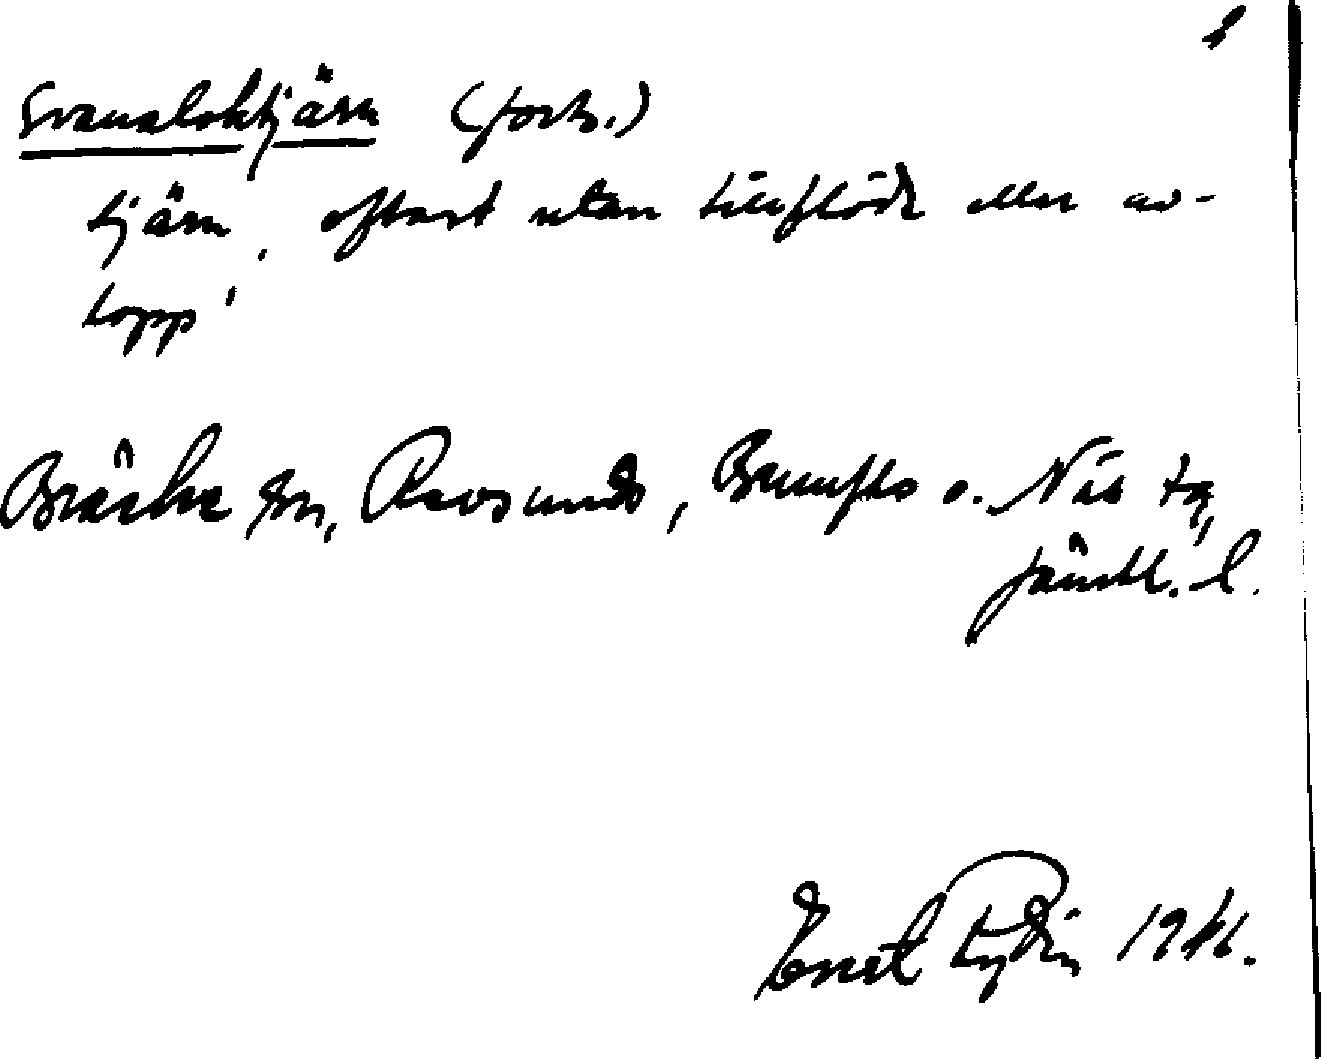 2
Svanaloktjärn (forts.)
tjärn, oftast utan tillflöde eller av-
lopp'
Bräcke sn, Revsunds, Brunflo o. Näs tg,
Jämtl. l.
Ernst Rydin 1941.